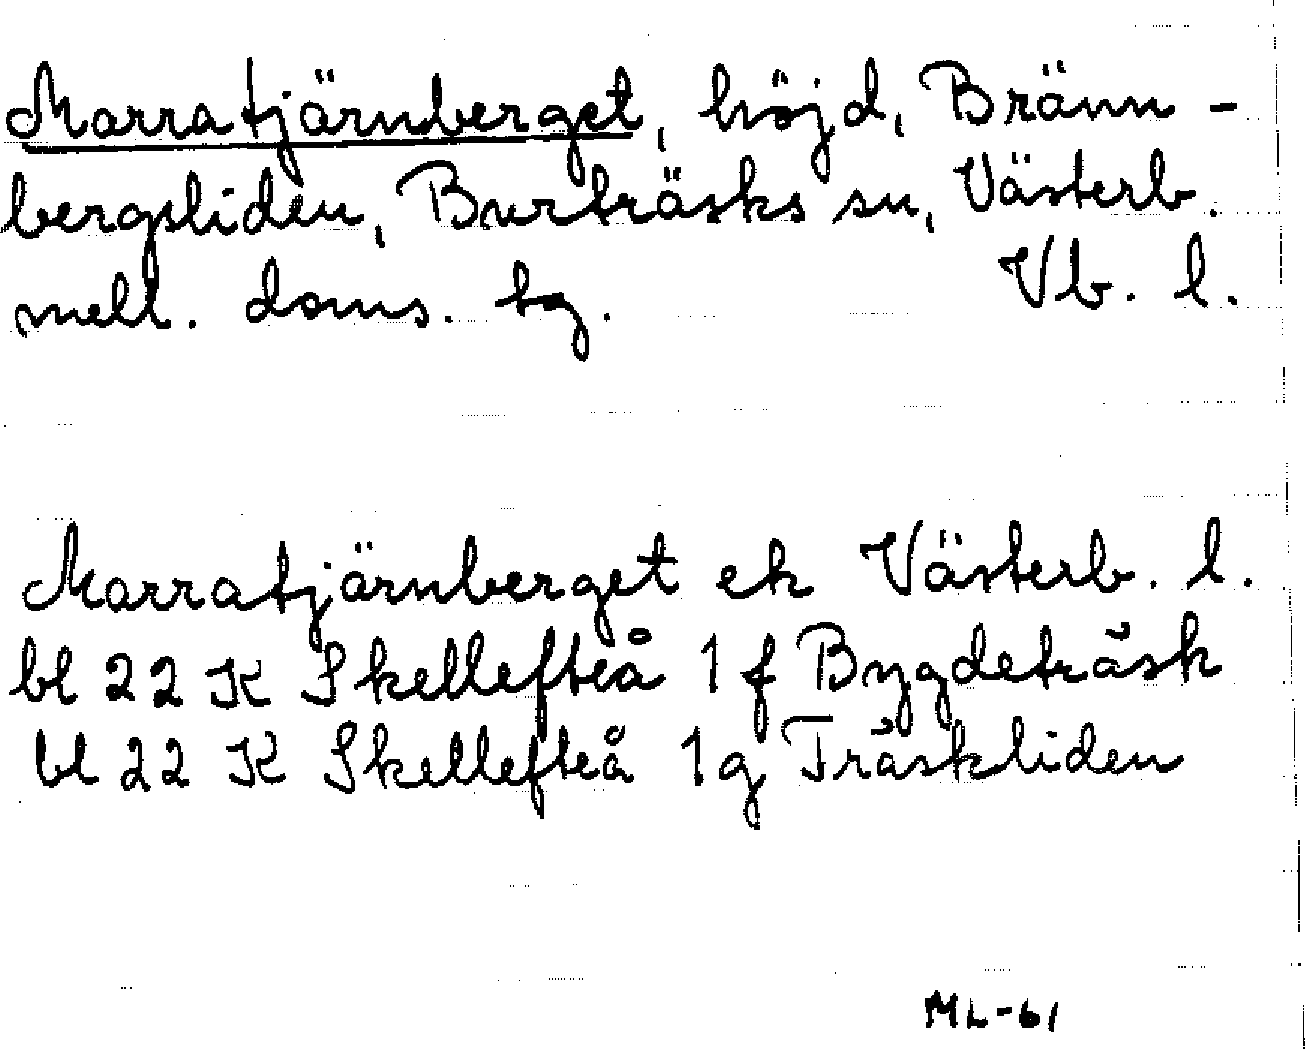 Marratjärnberget, höjd, Bränn-
bergsliden, Burträsks sn, Västerb.
mell. doms. tg. Vb. l.
Marratjärnberget ek Västerb. l.
bl 22 K Skellefteå 1 f Bygdeträsk
bl 22 K Skellefteå 1g Träskliden
ML-61